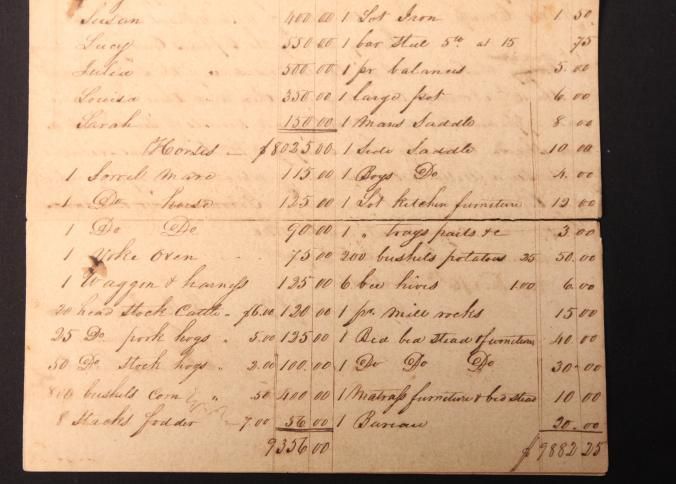 Susan 400 00
Lucy 550 00
Julia " 500 00
Louisa 350 00
Sarah 150 00
Horses — $8025 00
1 Sorrell Mare 115 00
1 Do horse 125 00
1 Do Do 90 00
1 Yoke Oxen 75 00
1 Waggon & harness 125 00
20 head stock Cattle - $6.00 120 00
25 Do pork hogs 5.00 125 00
50 Do Stock hogs 2.00 100.00
800 bushels Corn " 50 400 00
8 Stacks fodder - 7.00 56 00
9356 00
1 Lot Iron 1 50
1 bar Steel 5lb at 15 75
1 pr balances 5.00
1 large pot 6.00
1 Mans Saddle 8 00
1 Side Saddle 10 00
1 Boys Do 4.00
1 Lot kitchen furniture 12 00
1 " trays pails &c 3 00
200 bushels potatoes 25 50.00
6 bee hives 1.00 6 00
1 pr. Mill rocks 15 00
1 Bed bed stead & furniture 40 00
1 Do Do Do 30.00
1 Matrass furniture & bed stead 10 00
1 Bureau 20.00
$9882 25